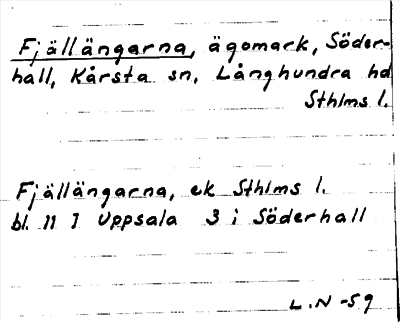 Fjällängarna, ägomark, Söder-
hall, Kårsta sn, Långhundra hd
Sthlms l.
Fjällängarna, ek Sthlms l.
bl. 11 I Uppsala 3 i Söderhall
L.N -59